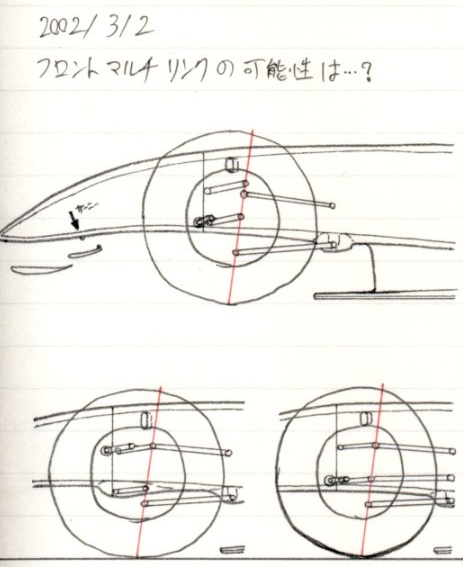 2002/3/2
フロントマルチリンクの可能性は…?